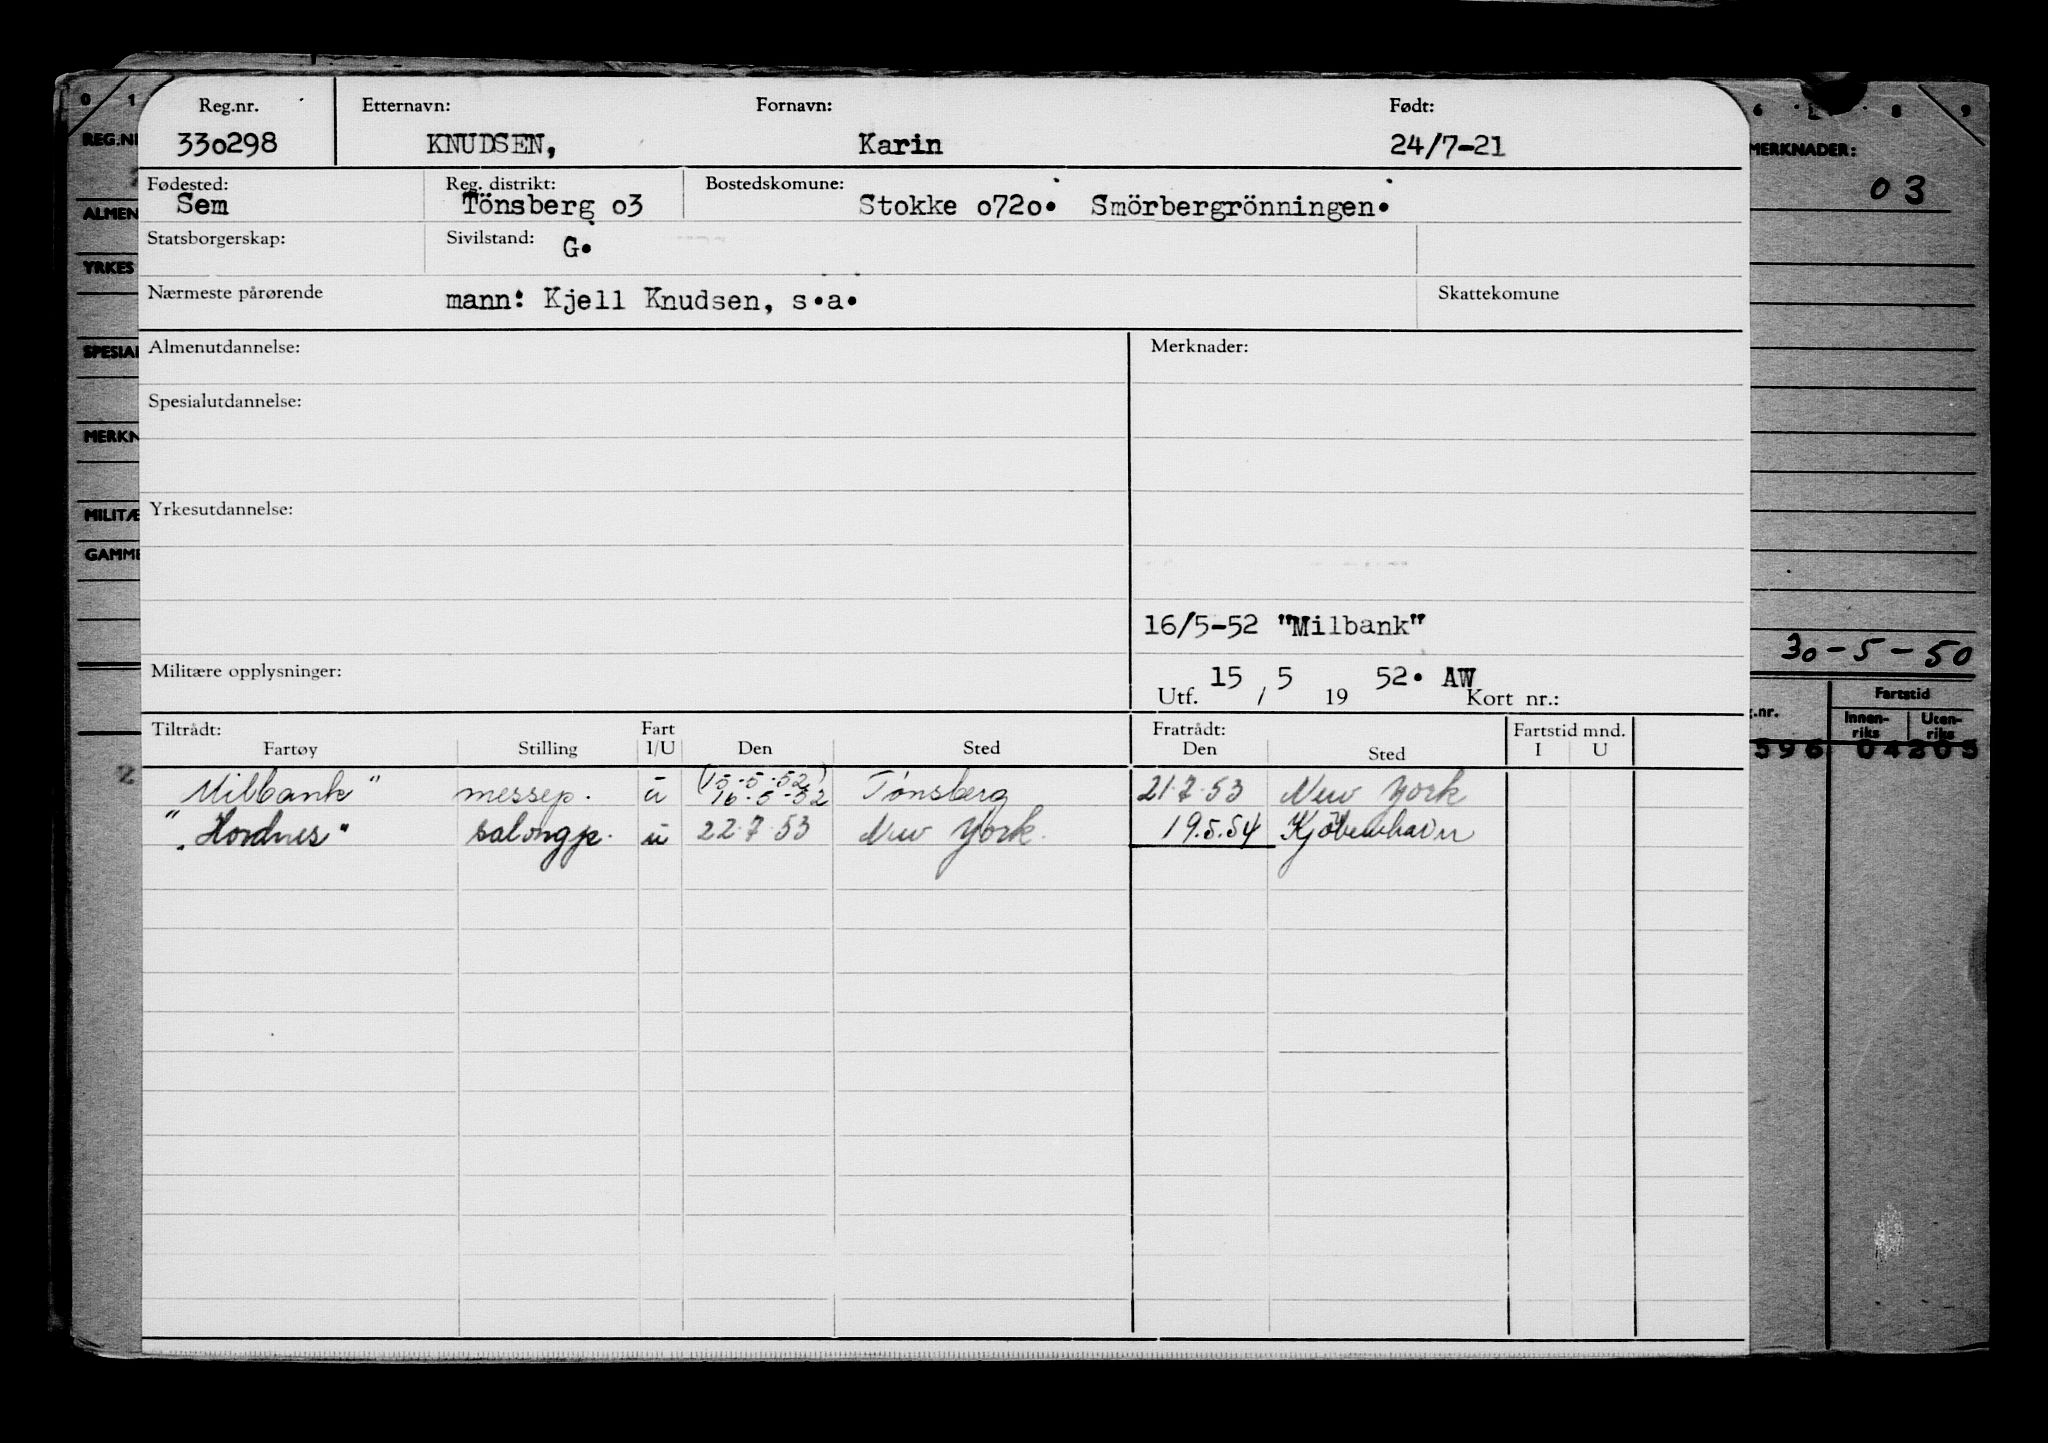 Reg.nr. Etternavn: Fornavn: Født:
330298 KNUDSEN, Karin 24/7-21
Fødested: Reg. distrikt: Bostedskomune:
Sem Tönsberg o3 Stokke o72o. Smörbergrönningen.
Statsborgerskap: Sivilstand: G.
Nærmeste pårørende mann: Kjell Knudsen, s.a. Skattekomune
Almenutdannelse: Merknader:
Spesialutdannelse:
Yrkesutdannelse:
16/5-52 "Milbank"
Militære opplysninger:
Utf. 15 / 5 19 52. AW Kort nr.:
Tiltrådt: Fart Fratrådt: Fartstid mnd.
Fartøy Stilling I/U Den Sted Den Sted I U
(15-5-52)
"Milbank" messep. u 16-5-52 Tønsberg 21.7.53 New York
"Hordnes" salongp. u 22.7.53 New York. 19.5.54 Kjøbenhavn
0 1
REG.N
ALMEN
YRKES
SPESIAL
MERKN
MILITÆ
GAMME
2
6 8 9
MERKNADER:
03
30-5-50
.nr. Fartstid
Innen-riks Uten-riks
596 04205